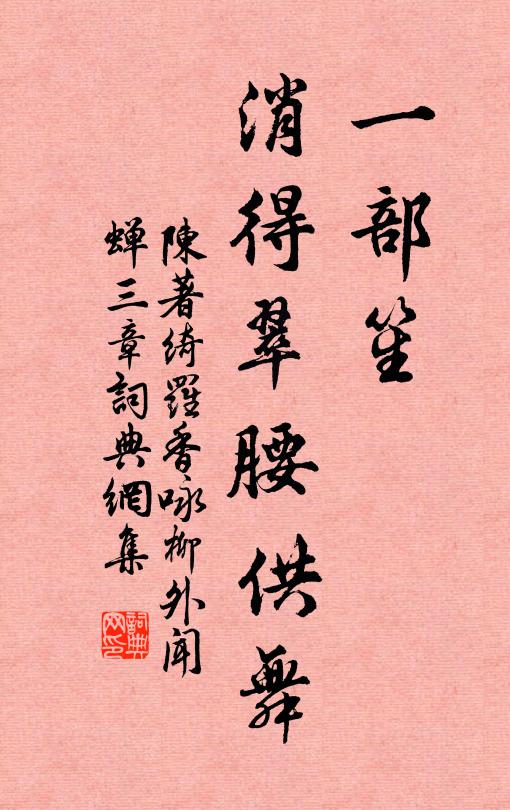 一部笙
消得翠腰供舞
陳著綺羅香咏柳外聞
蟬三章詞典網集
詞典網印